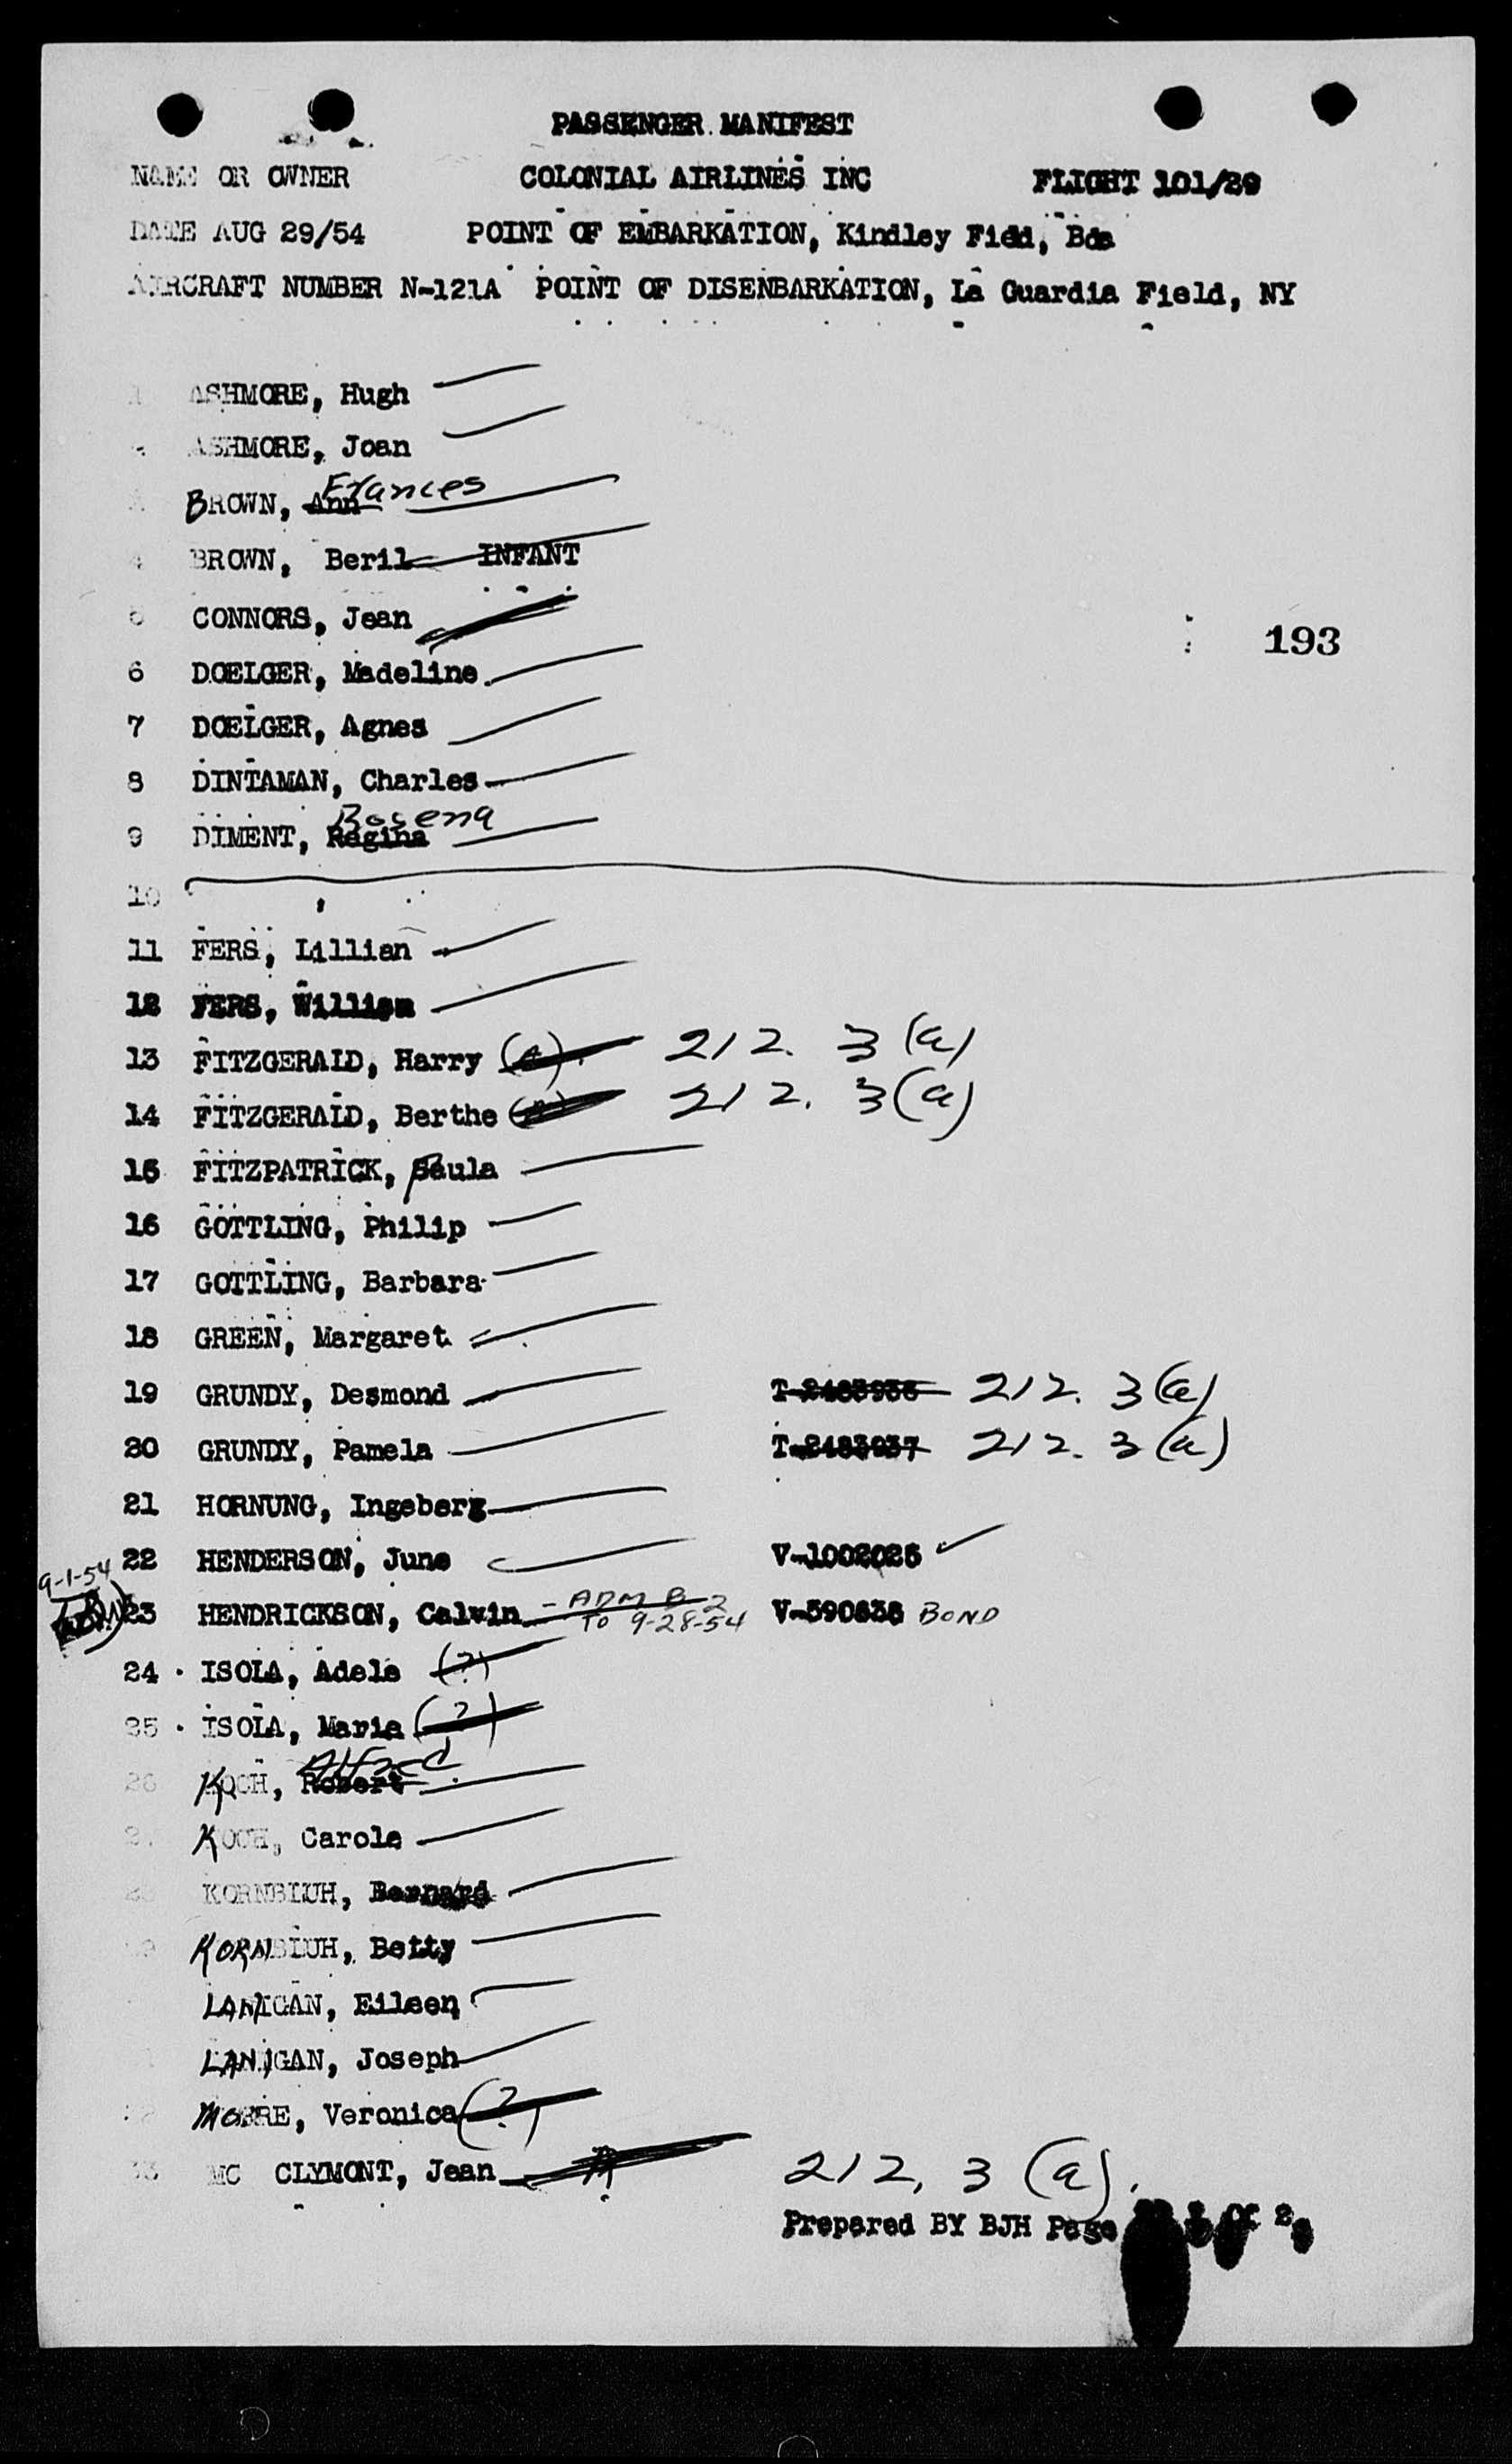 PASSENGER MANIFEST
NAME OR OWNER COLONIAL AIRLINES INC FLIGHT 101/29
DATE AUG 29/54 POINT OF EMBARKATION, Kindley Field, Bda
AIRCRAFT NUMBER N-121A POINT OF DISENBARKATION, La Guardia Field, NY
1 ASHMORE, Hugh
ASHMORE, Joan
Frances
BROWN, Ann
4 BROWN, Beril INFANT
5 CONNORS, Jean
193
6 DOELGER, Madeline
7 DOELGER, Agnes
8 DINTAMAN, Charles
Rosena
9 DIMENT, Regina
10
11 FERS, Lillian
12 FERS, William
13 FITZGERALD, Harry 212. 3 (a)
14 FITZGERALD, Berthe 212. 3 (a)
15 FITZPATRICK, Paula
16 GOTTLING, Philip
17 GOTTLING, Barbara
18 GREEN, Margaret
19 GRUNDY, Desmond T-2483936 212. 3 (a)
20 GRUNDY, Pamela T-2483937 212. 3 (a)
21 HORNUNG, Ingeberg
22 HENDERSON, June V-1002025
9-1-54
23 HENDRICKSON, Calvin - ADM B-2 V-590838 BOND
TO 9-28-54
24 ISOLA, Adele (?)
25 ISOLA, Marie (?)
Alfred
26 KOCH, Robert
KOCH, Carole
KORNBLUH, Bernard
KORNBLUH, Betty
LANIGAN, Eileen
LANIGAN, Joseph
MOORE, Veronica (?)
33 MC CLYMONT, Jean 212, 3 (a).
Prepared BY BJH Page of 2